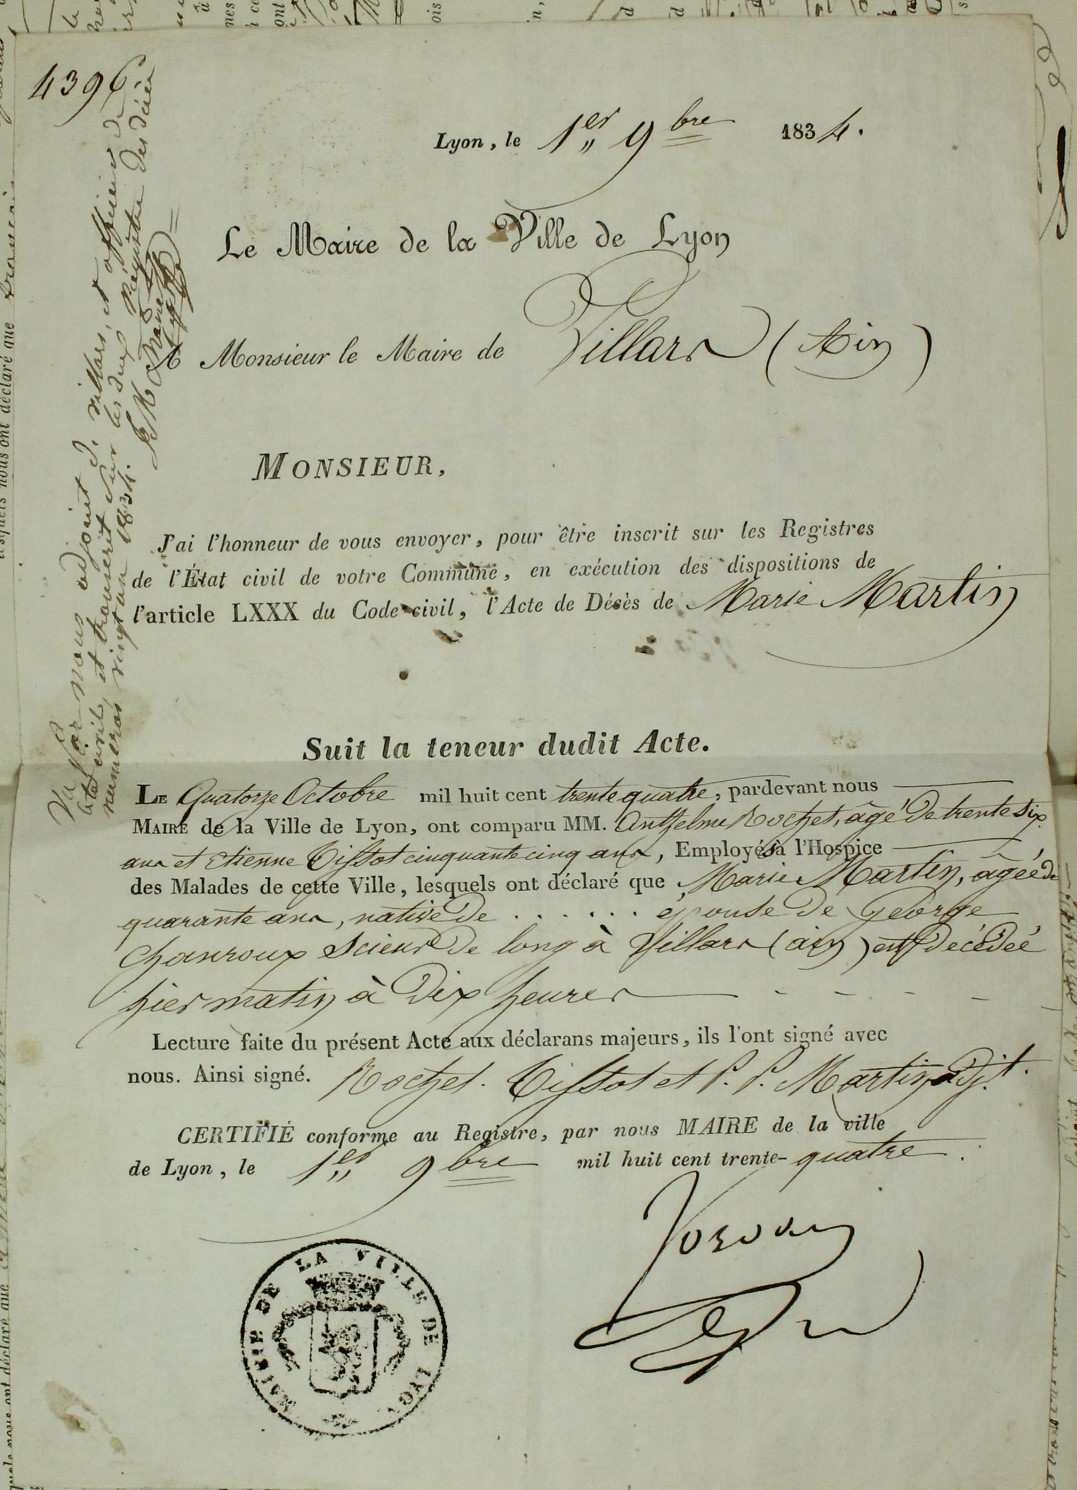 4396
Lyon, le 1er 9bre 1834.
Le Maire de la Ville de Lyon
A Monsieur le Maire de Villars (Ain)
MONSIEUR,
J'ai l'honneur de vous envoyer, pour être inscrit sur les Registres
de l'État civil de votre Commune, en exécution des dispositions de
l'article LXXX du Code civil, l'Acte de Décès de Marie Martin
Suit la teneur dudit Acte.
LE Quatorze Octobre mil huit cent trente quatre, pardevant nous
MAIRE de la Ville de Lyon, ont comparu MM. Anthelme Rochet, âgé de trente six
ans et Etienne Tissot cinquante cinq ans, Employés à l'Hospice
des Malades de cette Ville, lesquels ont déclaré que Marie Martin, âgée de
quarante ans, native de . . . . . . épouse de George
Chanroux scieur de long à Villars (ain) est décédée
hier matin à dix heures
Lecture faite du présent Acte aux déclarans majeurs, ils l'ont signé avec
nous. Ainsi signé. Rochet. Tissot et P. P. Martin adjt.
CERTIFIÉ conforme au Registre, par nous MAIRE de la ville
de Lyon, le 1er 9bre mil huit cent trente-quatre.
MAIRIE DE LA VILLE DE LYON
Vu par nous adjoint de villars, et officier de
état civil, et transcrit sur les deux registres des décès
numéros vingt un 1834.